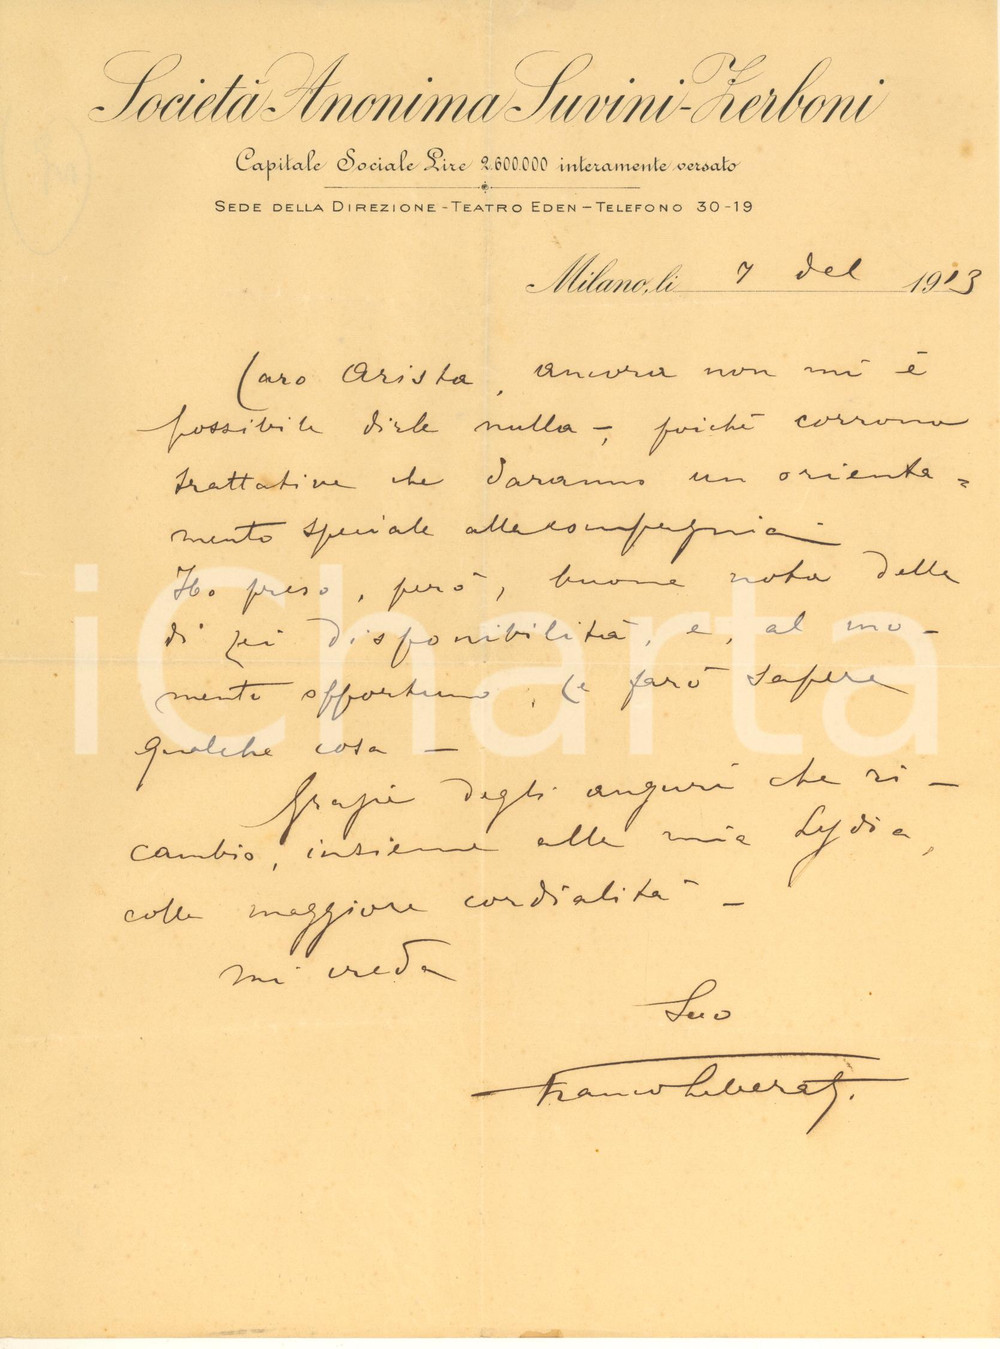 Società Anonima Suvini-Zerboni
Capitale Sociale Lire 2.600.000 interamente versato
SEDE DELLA DIREZIONE - TEATRO EDEN - TELEFONO 30-19
Milano, li 7 del 1913
Caro Arista, ancora non mi è
possibile dirle nulla -, poichè corrono
trattative che daranno un orienta=
mento speciale alla compagnia -
Ho preso, però, buona nota della
di Lei disponibilità, e, al mo-
mento opportuno, le farò sapere
qualche cosa -
Grazie degli auguri che ri-
cambio, insieme alla mia Lydia,
colla maggiore cordialità -
mi creda
Suo
Franco Liberati.
iCharta